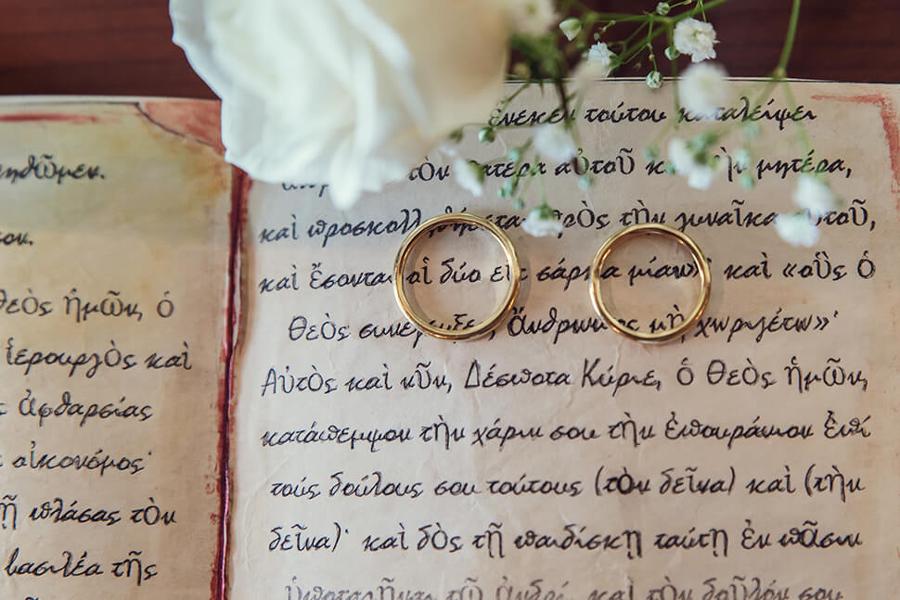 ηθῶμεν.
Θεὸς ἡμῶν, ὁ
ἱερουργὸς καὶ
ἀφθαρσίας
οἰκονόμος·
πλάσας τὸν
βασιλέα τῆς
ἕνεκεν τούτου καταλείψει
τὸν πατέρα αὐτοῦ καὶ τὴν μητέρα,
καὶ προσκολληθήσεται πρὸς τὴν γυναῖκα αὐτοῦ,
καὶ ἔσονται οἱ δύο εἰς σάρκα μίαν» καὶ «οὓς ὁ
Θεὸς συνέζευξε, ἄνθρωπος μὴ χωριζέτω»·
Αὐτὸς καὶ νῦν, Δέσποτα Κύριε, ὁ Θεὸς ἡμῶν,
κατάπεμψον τὴν χάριν σου τὴν ἐπουράνιον ἐπὶ
τοὺς δούλους σου τούτους (τὸν δεῖνα) καὶ (τὴν
δεῖνα)· καὶ δὸς τῇ παιδίσκῃ ταύτῃ ἐν πᾶσιν
ὑποταγῆναι τῷ ἀνδρί, καὶ τὸν δοῦλόν σου